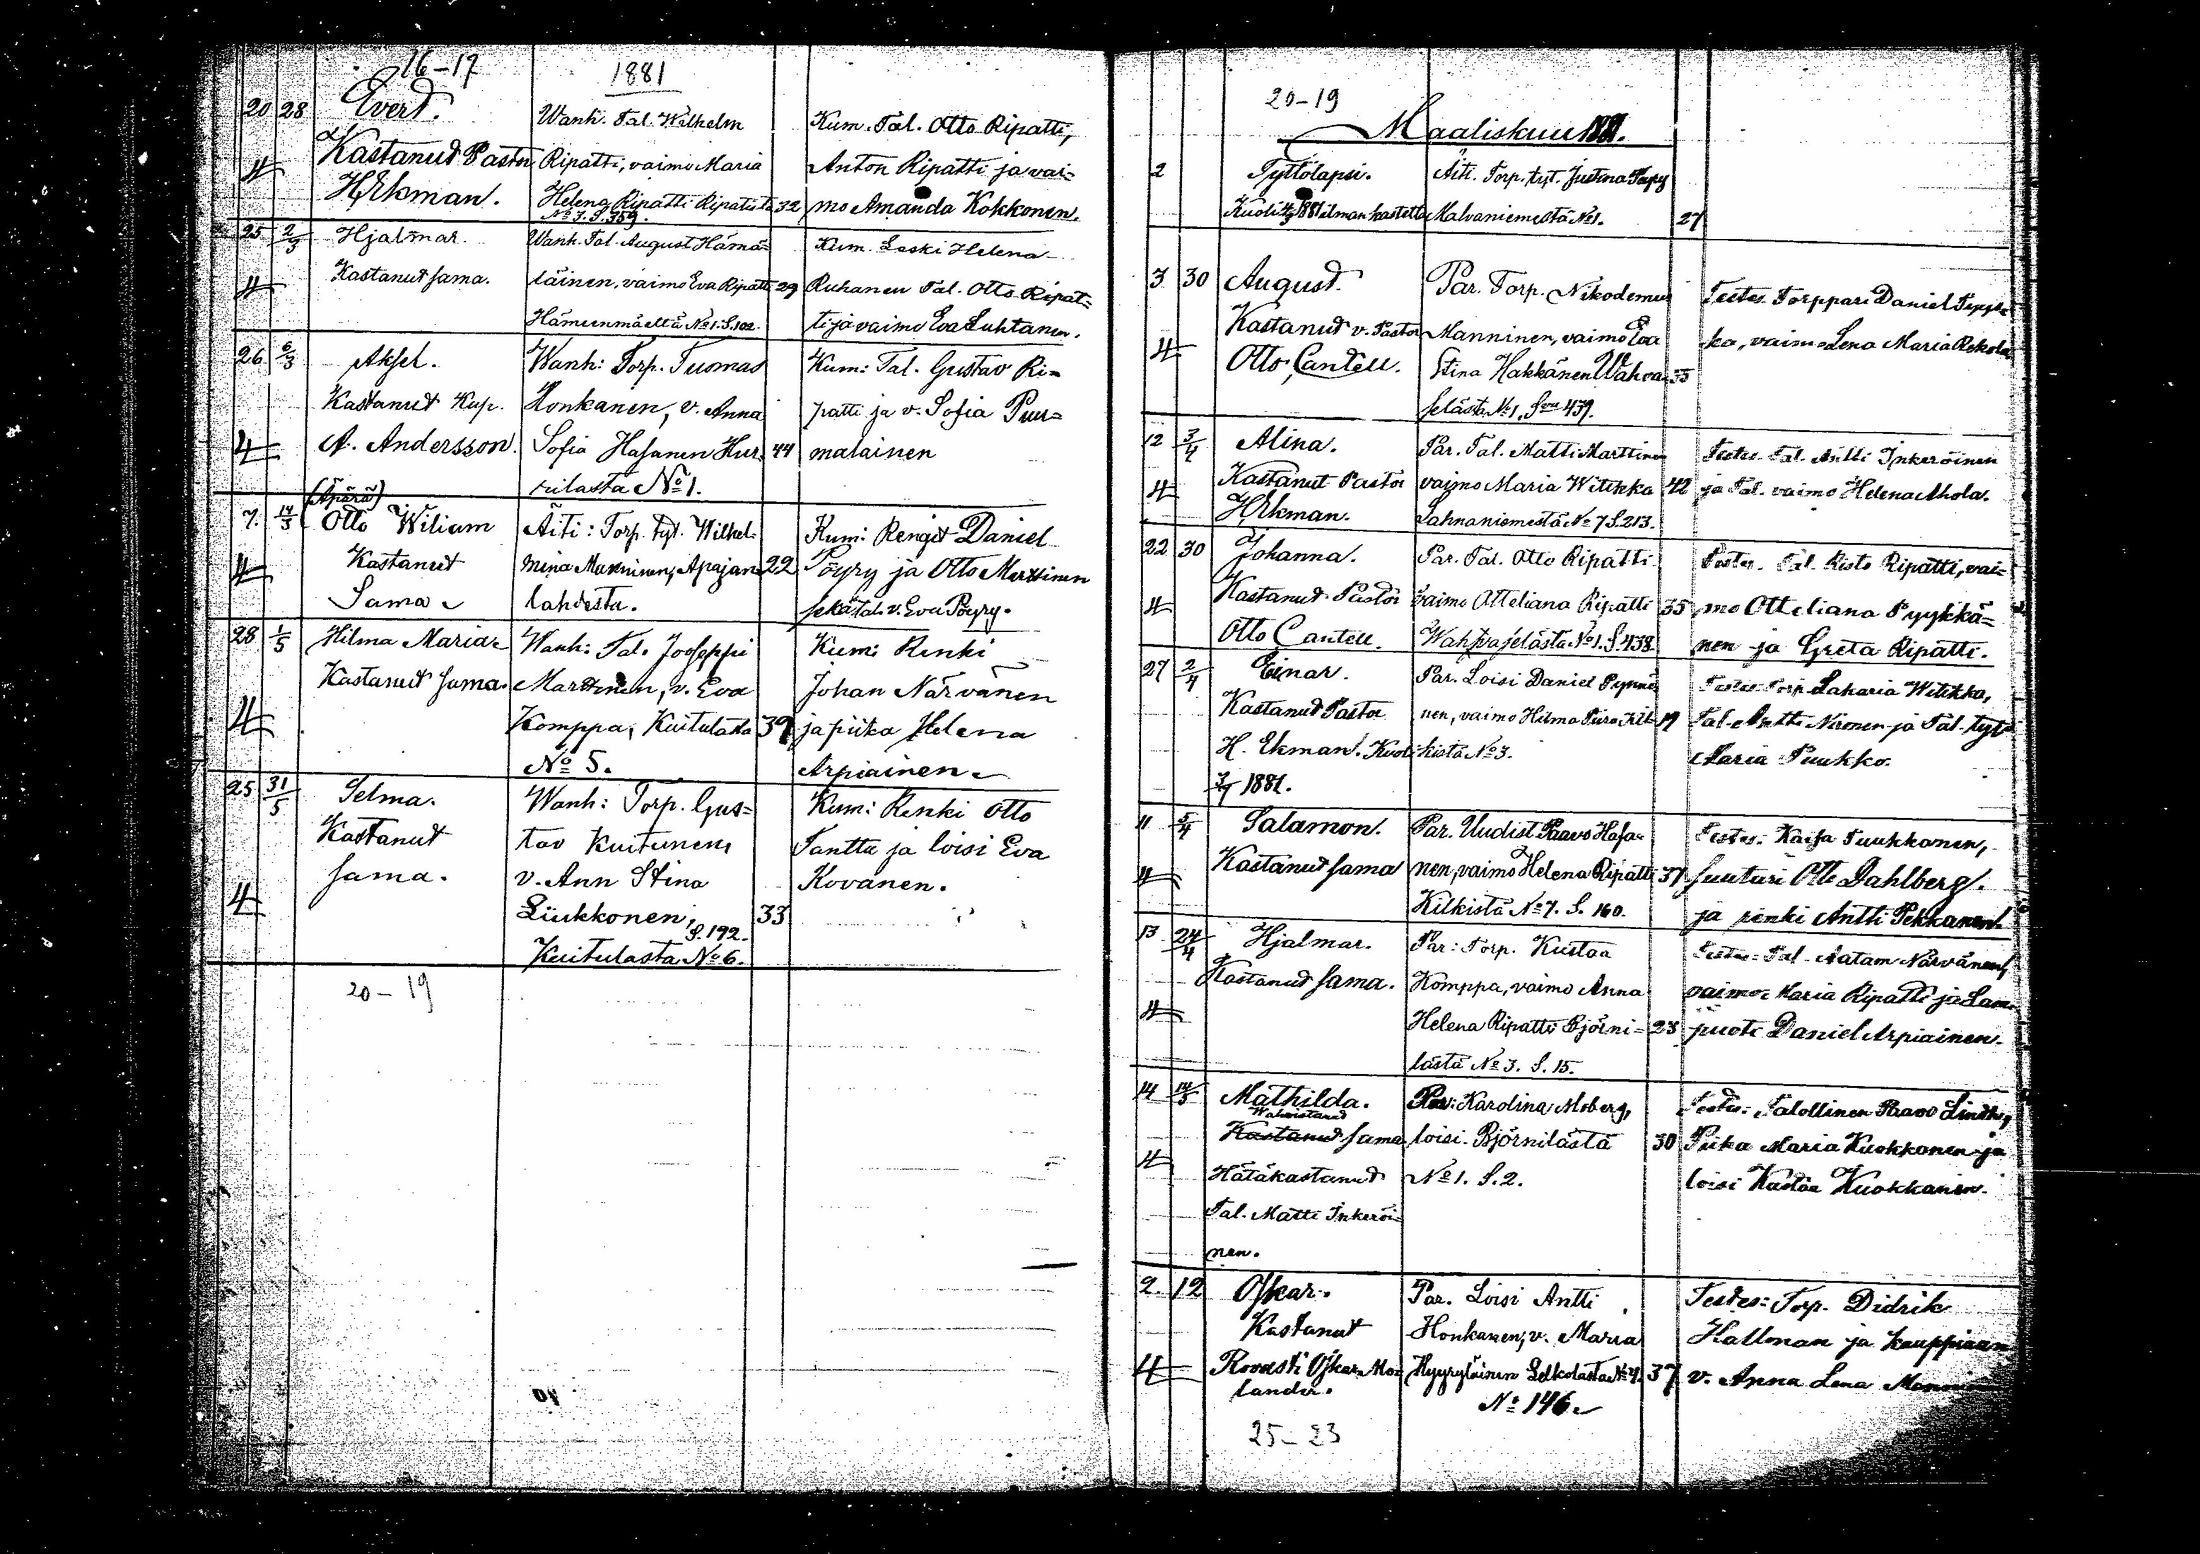 16-17
1881
20 28 Evert.
Kastanut Pastor
H Ekman.
Wanh. Tal. Wilhelm
Ripatti, vaimo Maria
Helena Ripatti Ripatista 32
No 7. S. 359.
Kum. Tal. Otto Ripatti,
Anton Ripatti ja vai=
mo Amanda Kokkonen.
25 2/3 Hjalmar.
Kastanut sama.
Wanh. Tal. August Hämä=
läinen, vaimo Eva Ripatti 29
Hämeenmäeltä No 1. S. 102.
Kum. Leski Helena
Ruhanen Tal. Otto Ripat=
ti ja vaimo Eva Luhtanen.
26 6/3 Aksel.
Kastanut Kap.
A. Andersson.
Wanh: Torp. Tuomas
Honkanen, v. Anna
Sofia Hasanen Hur= 44
rilasta No 1.
Kum: Tal. Gustav Ri=
patti ja v. Sofia Puur=
malainen
(Äpärä)
7. 14/3 Otto Wiliam
Kastanut
Sama
Äiti: Torp. tyt. Wilhel=
mina Manninen, Apajan= 22
lahdesta.
Kum: Rengit Daniel
Pöyry ja Otto Marttinen
sekä tal. v. Eva Pöyry.
28 1/5 Hilma Maria
Kastanut sama.
Wanh: Tal. Jooseppi
Marttinen, v. Eva
Komppa, Kuitulasta 39
No 5.
Kum: Renki
Johan Närvänen
ja piika Helena
Arpiainen
25 31/5 Selma.
Kastanut
sama.
Wanh: Torp. Gus=
tav Kuitunen
v. Ann Stina
Liukkonen, 33
S. 192.
Kuitulasta No 6.
Kum: Renki Otto
Tanttu ja loisi Eva
Kovanen.
20-19
20-19
Maaliskuu 1881.
2 Tyttölapsi.
Kuoli 1881 ilman kastetta
Äiti. Torp. tyt. Justina
Malvaniemestä No 1. 27
3 30 August.
Kastanut v. Pastor
Otto Cantell.
Par. Torp. Nikodemus
Manninen, vaimo Eva
Stina Hakkänen Wahva= 35
selästä No 1. S. 439.
Testes. Torppari Daniel
ka, vaimo Lena Maria Rekola
12 3/4 Alina.
Kastanut Pastor
H Ekman.
Par. Tal. Matti Marttinen
vaimo Maria Witikka 42
Lahnaniemestä No 7 S. 213.
Testes. Tal. Antti Inkeröinen
ja Tal. vaimo Helena Ahola.
22 30 Johanna.
Kastanut Pastor
Otto Cantell.
Par. Tal. Otto Ripatti
vaimo Otteliana Ripatti 35
Wahvaselästä No 1. S. 438
Testes. Tal. Risto Ripatti, vai=
mo Otteliana Pyykkä=
nen ja Greta Ripatti.
27 2/4 Einar.
Kastanut Pastor
H. Ekman. Kuoli
1881.
Par. Loisi Daniel Pynnö=
nen, vaimo Hilma Kil= 19
kistä No 3.
Testes: Torp. Sakaria Witikka,
Tal. Antti Nironen ja Tal. tytö
Maria Puukko.
11 5/4 Salamon.
Kastanut sama
Par. Uudist. Paavo Hasa=
nen, vaimo Helena Ripatti 37
Kilkistä No 7. S. 160.
Testes. Kaisa Tuukkanen,
suutari Otto Dahlberg.
ja renki Antti Pekkanen.
13 24/4 Hjalmar.
Kastanut sama.
Par: Torp. Kustaa
Komppa, vaimo Anna
Helena Ripatti Björni= 23
lästä No 3. S. 15.
Testes: Tal. Aatam Närvänen,
vaimo Maria Ripatti ja Lam=
puoti Daniel Arpiainen.
14 14/3 Mathilda.
Wahvistanut
Kastanut sama
Hätäkastanut
Tal. Matti Inkeröi=
nen.
Par: Karolina Moberg,
loisi. Björnilästä 30
No 1. S. 2.
Testes: Talollinen Paavo
Piika Maria Kuokkanen ja
loisi Kustaa Kuokkanen.
2. 12 Oskar.
Kastanut
Rovasti Oskar Mo=
lander.
Par. Loisi Antti
Honkanen, v. Maria
Hyyryläinen Selkolasta No 4. 37
No 146.
Testes: Torp. Didrik
Hallman ja kauppiaan
v. Anna Lena
25-23